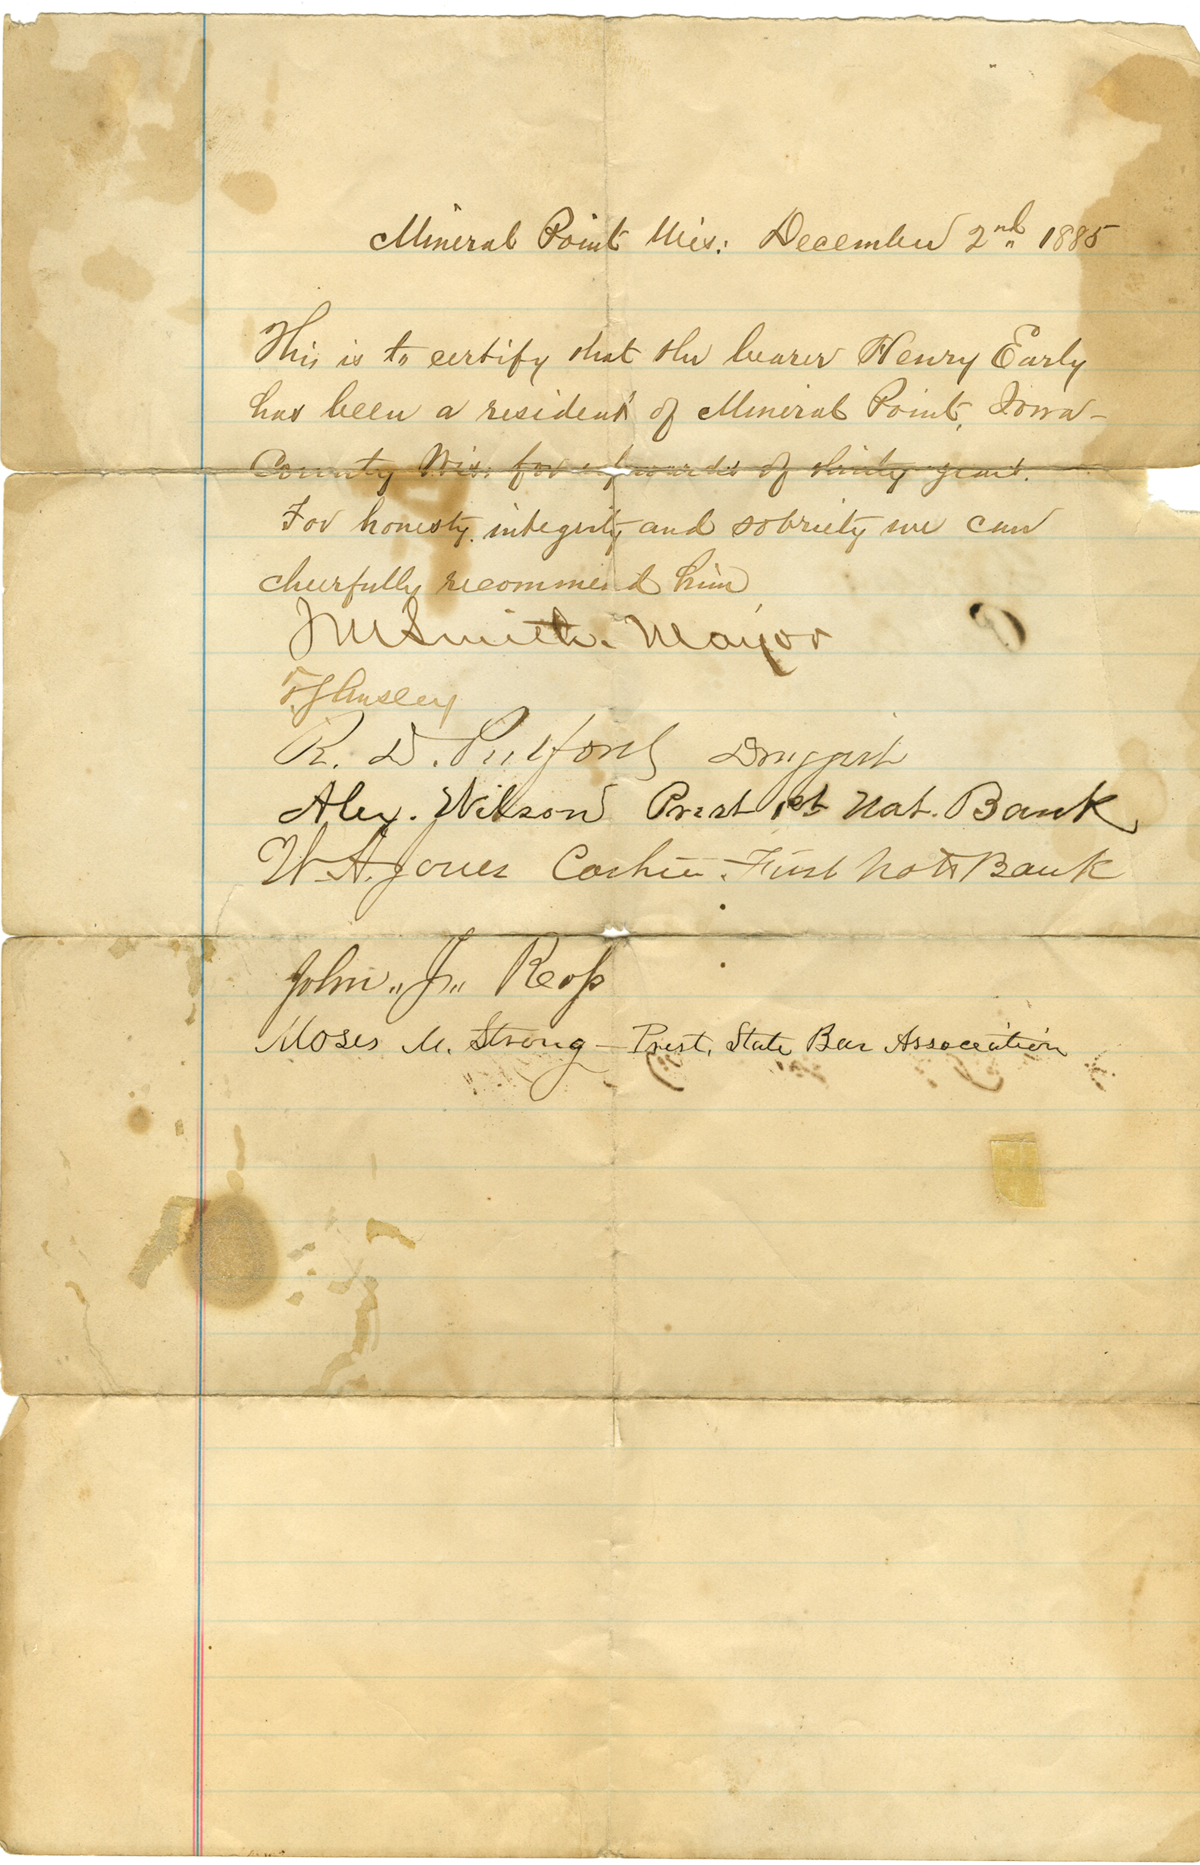 Mineral Point Wis: December 2nd 1885
This is to certify that the bearer Henry Early
has been a resident of Mineral Point, Iowa-
County Wis: for upwards of thirty years.
For honesty, integrity and sobriety we can
cheerfully recommend him,
J M Smith. Mayor
T. J Ansley
R. D. Pulford Druggist
Alex. Wilson Prest 1st Nat. Bank
W. A. Jones Cashier. First Natl Bank
John "J" Ross
Moses M. Strong – Prest. State Bar Association